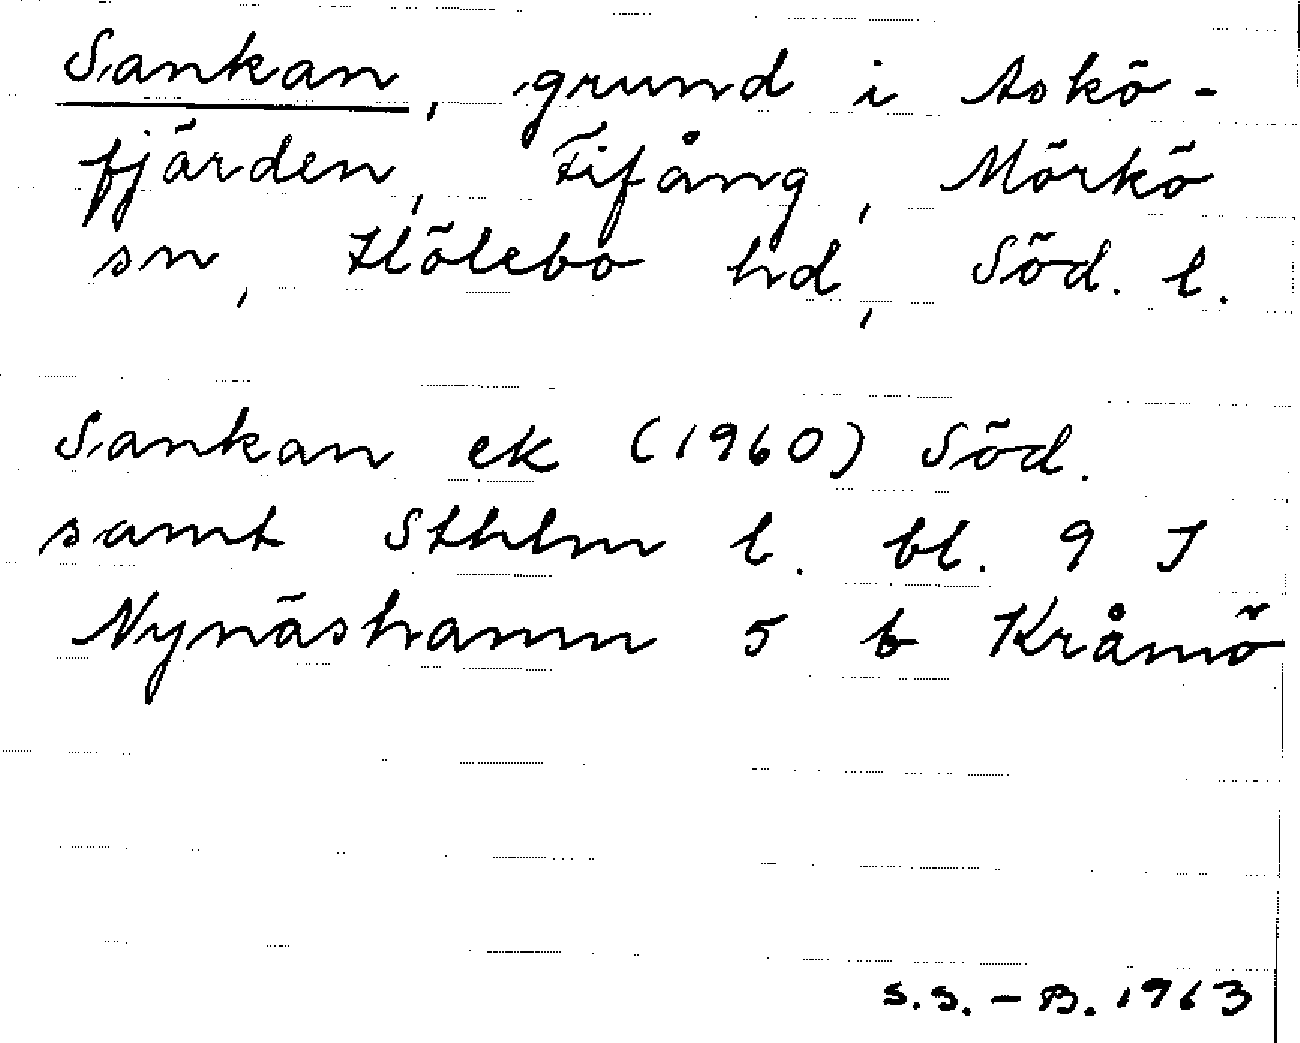 Sankan, grund i Askö-
fjärden, Fifång, Mörkö
sn, Hölebo hd, Söd. l.
Sankan ek (1960) Söd.
samt Sthlm l. bl. 9 J
Nynäshamn 5 b Kråmö
S.S.-B. 1963